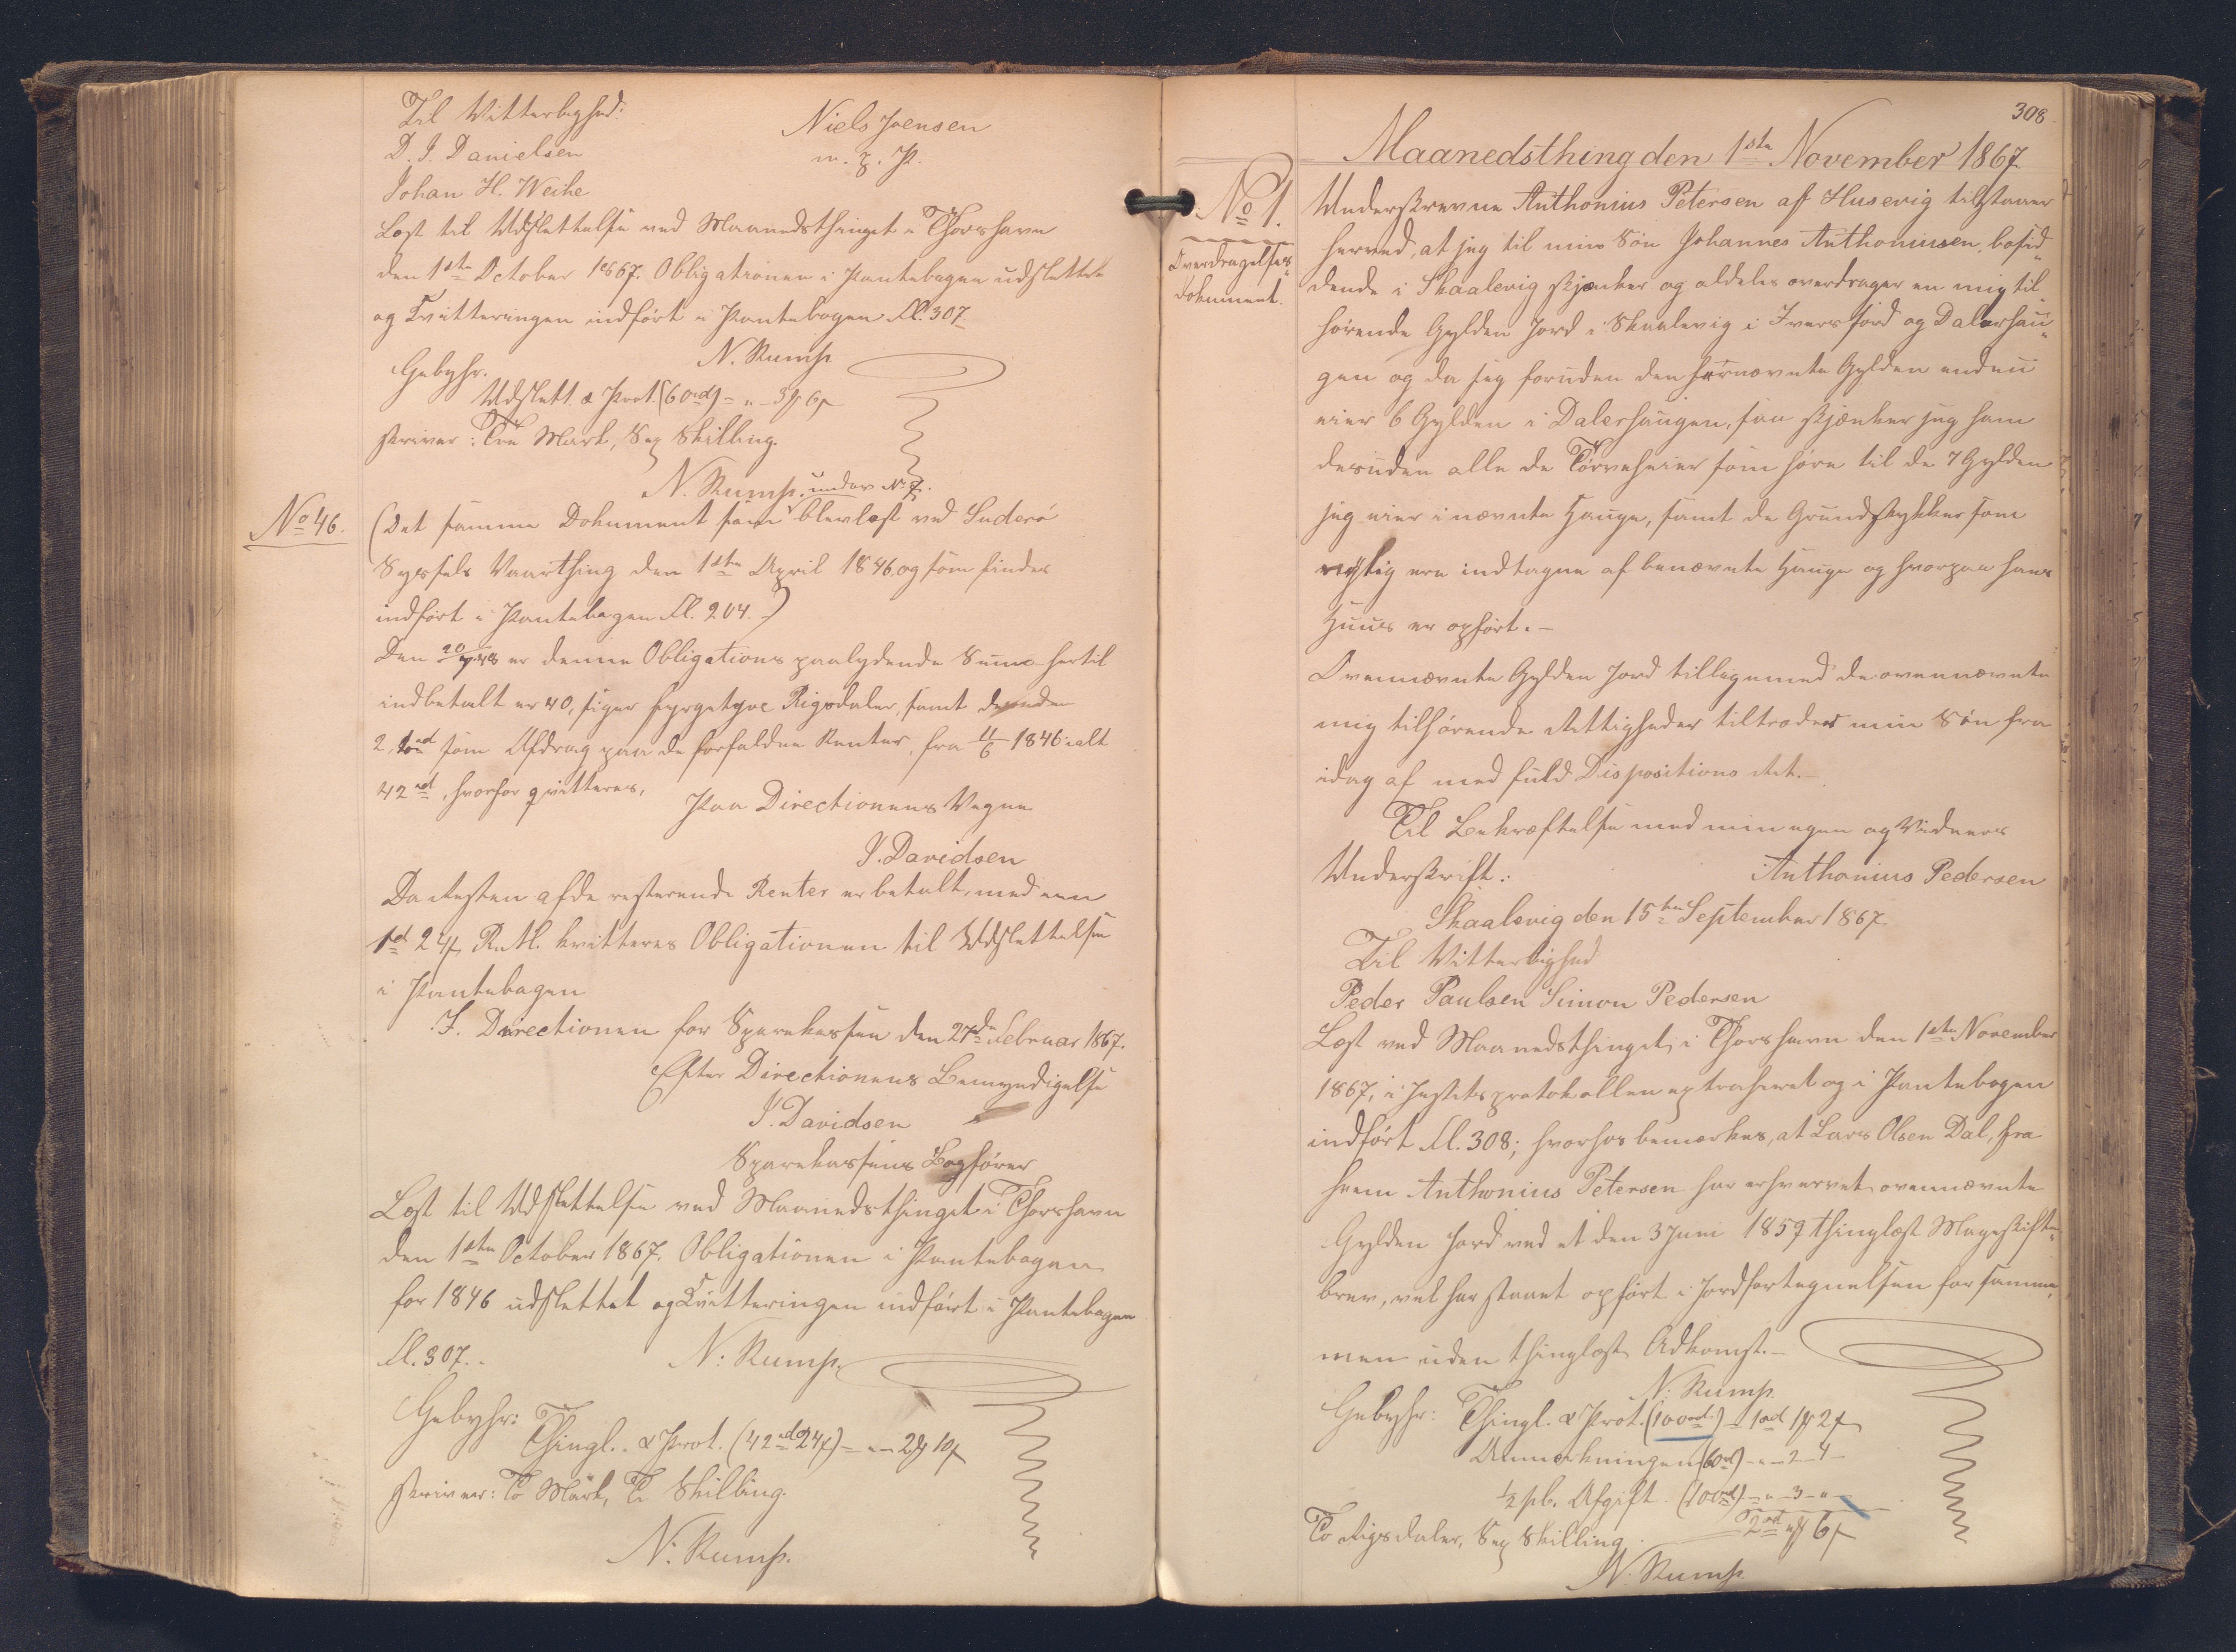 Til Vitterlighed:
Niels Joensen
D. J. Danielsen
m. f. P.
Johan H. Weihe
Læst til Udslettelse ved Maanedsthinget i Thorshavn
den 1ste October 1867. Obligationen i Pantebogen udslettet
og Qvitteringen indført i Pantebogen Fl. 307.
N. Rump
Gebyhr.
Udslett. & Prot. (60rd) = " - 3 ℳ 6 ß
skriver: Tre Mark, Sex Skilling.
N. Rump.
under No 7.
No 46.
(Det samme Dokument som blev læst ved Suderö
Syssels Vaarthing den 1ste April 1846, og som findes
indført i Pantebogen Fl. 204.)
Den 20/7 48 er denne Obligations paalydende Summa hertil
indbetalt er 40, siger fyrgetyve Rigsdaler, samt desuden
2 rd som Afdrag paa de forfaldne Renter, fra 11/6 1846 ialt
42 rd, hvorfor qvitteres,
Paa Directionens Vegne
J. Davidsen
Da Resten af de resterende Renter er betalt, med een
1 rd 24 ß Rmt. kvitteres Obligationen til Udslettelse
i Pantebogen
I Directionen for Sparekassen den 27de Februar 1867.
Efter Directionens Bemyndigelse
J. Davidsen
Sparekassens Bogfører
Læst til Udslettelse ved Maanedsthinget i Thorshavn
den 1ste October 1867. Obligationen i Pantebogen
for 1846 udslettet og Qvitteringen indført i Pantebogen
Fl. 307.
N. Rump.
Gebyhr:
Thingl. & Prot. (42 rd 24 ß) = " - 2 ℳ 10 ß
skriver: To Mark, Ti Skilling.
N. Rump.
308.
Maanedsthing den 1ste November 1867
No 1.
Overdragelses-
dokument.
Underskrevne Anthonius Petersen af Husevig tilstaaer
herved, at jeg til min Søn Johannes Anthoniusen, bosid-
dende i Skaalevig skjænker og aldeles overdrager en mig til-
hørende Gylden Jord i Skaalevig i Iversjord og Dalershau-
gen og da jeg foruden den førnævnte Gylden endnu
eier 6 Gylden i Dalershaugen, saa skjænker jeg ham
desuden alle de Tørveheier som høre til de 7 Gylden
jeg eier i nævnte Hauge, samt de Grundstykker som
nyslig ere indtagne af benævnte Hauge og hvorpaa hans
Huus er opført. —
Ovennævnte Gylden Jord tilligemed de ovennævnte
mig tilhørende Rettigheder tiltræder min Søn fra
idag af med fuld Dispositions Ret. —
Til Bekræftelse med min egen og Vidners
Underskrift:
Anthonius Pedersen
Skaalevig den 15de September 1867
Til Vitterlighed
Peder Paulsen Simon Pedersen
Læst ved Maanedsthinget i Thorshavn den 1ste November
1867, i Justitsprotokollen extraheret og i Pantebogen
indført Fl. 308; hvorhos bemærkes, at Lars Olsen Dal, fra
hvem Anthonius Petersen har erhvervet ovennævnte
Gylden Jord ved et den 3 Juni 1859 thinglæst Mageskifte-
brev, vel har staaet opført i Jordfortegnelsen for samme,
men uden thinglæst Adkomst. —
N. Rump
Gebyhr: Thingl. & Prot. (100 rd) = 1 rd 1 ℳ 2 ß
Anmærkningen (60 rd) - " - 2 - 4 -
½ pCt. Afgift. (100 rd) - " - 3 - " -
2 rd " ℳ 6 ß
To Rigsdaler, Sex Skilling
N. Rump